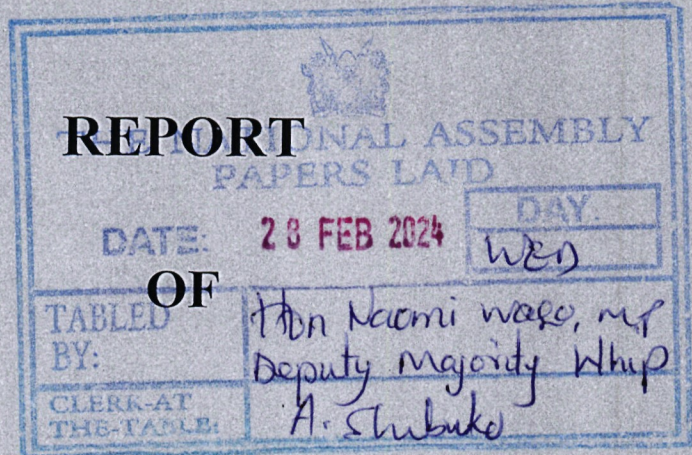 REPORT
THE NATIONAL ASSEMBLY
PAPERS LAID
DATE: 28 FEB 2024
DAY.
WED
OF
TABLED BY:
Hon Naomi Waqo, MP
Deputy Majority Whip
CLERK-AT THE-TABLE:
A. Shibuko